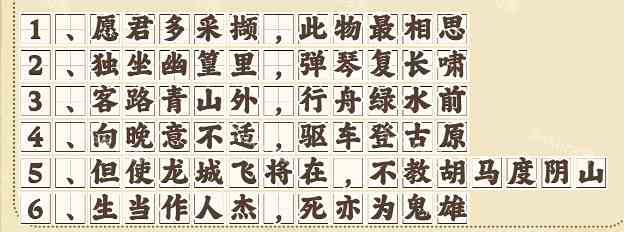 1、愿君多采撷，此物最相思
2、独坐幽篁里，弹琴复长啸
3、客路青山外，行舟绿水前
4、向晚意不适，驱车登古原
5、但使龙城飞将在，不教胡马度阴山
6、生当作人杰，死亦为鬼雄